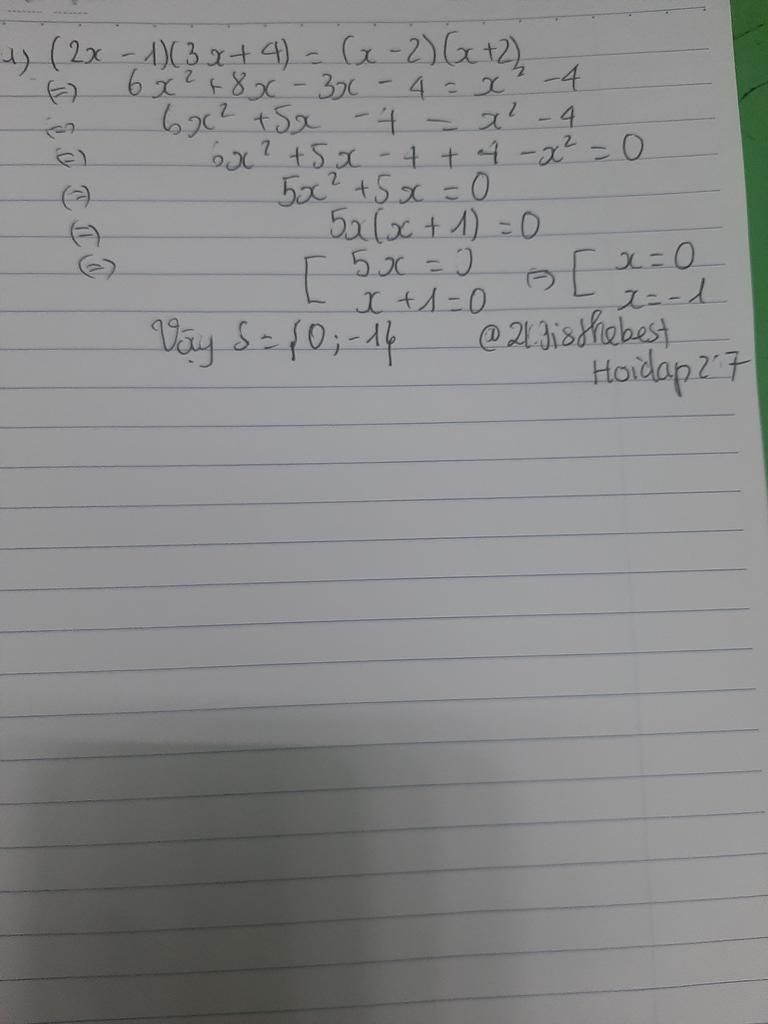 1) (2x - 1)(3x + 4) = (x - 2)(x + 2)
(=) 6x² + 8x - 3x - 4 = x² - 4
(=) 6x² + 5x - 4 = x² - 4
(=) 6x² + 5x - 4 + 4 - x² = 0
(=) 5x² + 5x = 0
(=) 5x(x + 1) = 0
(=) [ 5x = 0 (=) [ x = 0
x + 1 = 0 x = -1
Vậy S = {0; -1} @2k3isthebest
Hoidap247